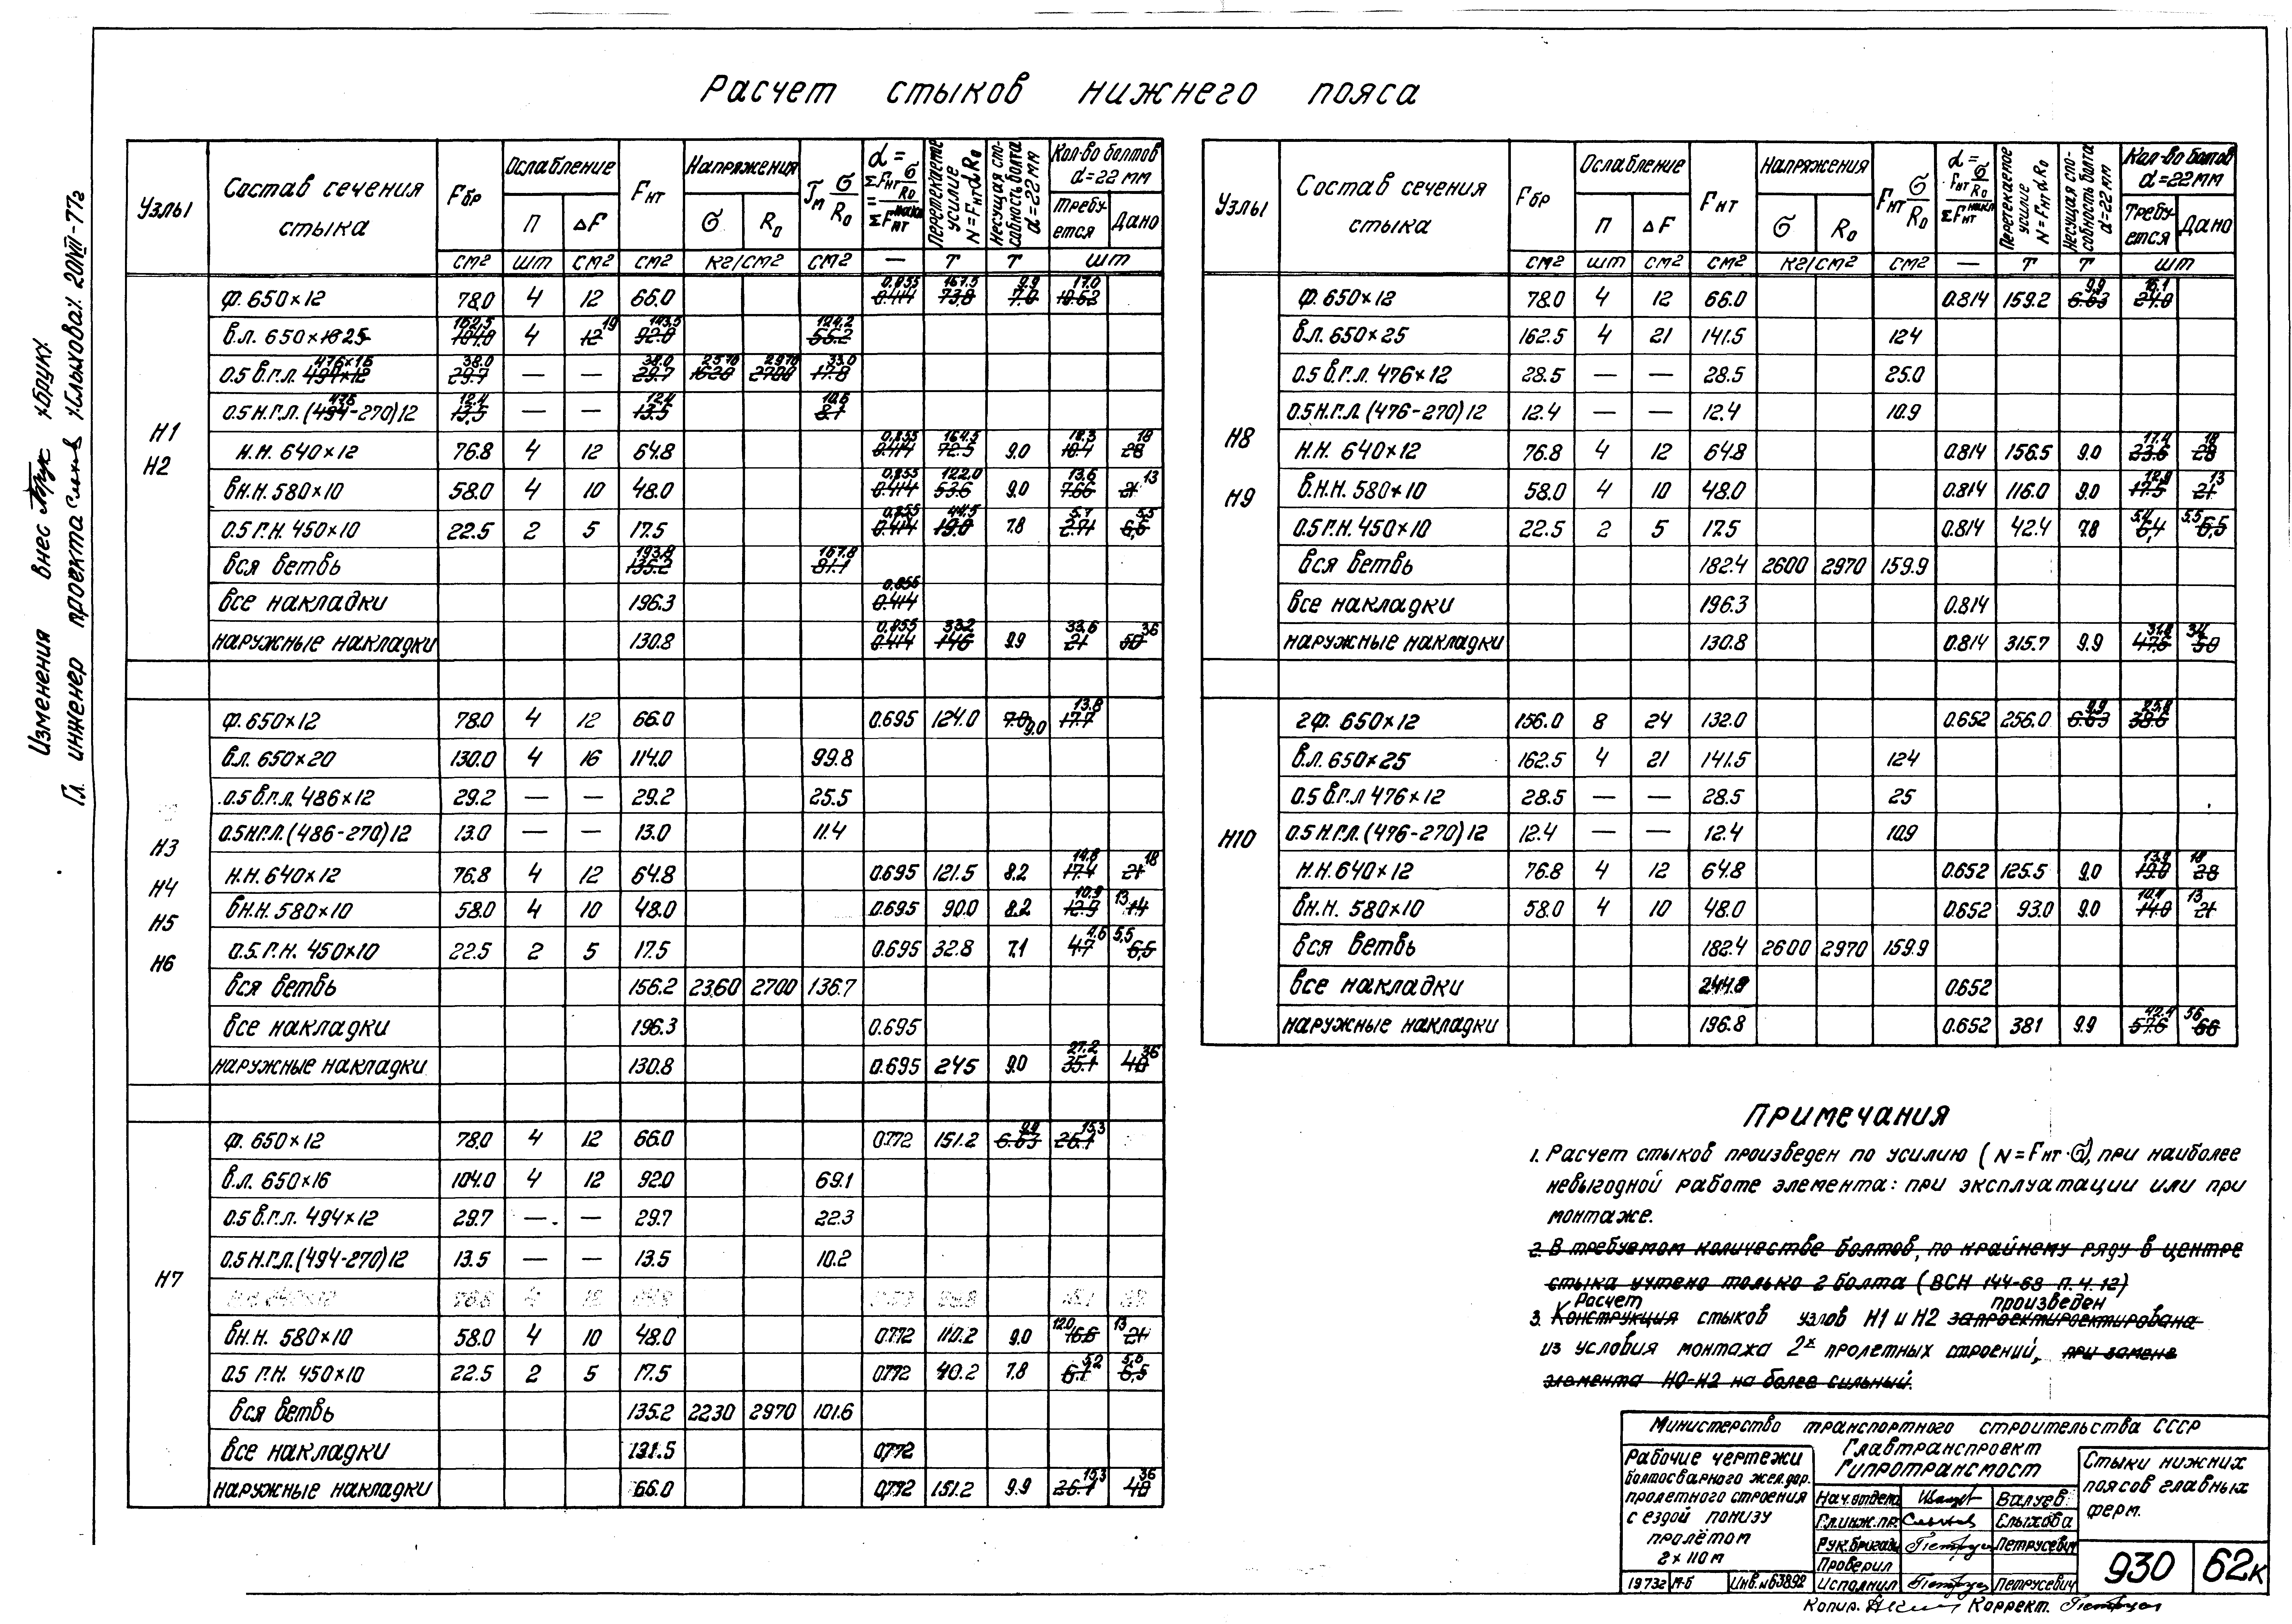 Расчет стыков нижнего пояса
Изменения внес /Брук/
Гл. инженер проекта /Слыхова/ 20 VIII-77г
Узлы | Состав сечения стыка | Fбр | Ослабление | Fнт | Напряжения | Кол-во болтов d=22 мм
П | ΔF | σ | R₀ | Требуется | Дано
см² | шт | см² | см² | кг/см² | см² | — | т | т | шт
Н1 Н2
ф. 650×12 | 78.0 | 4 | 12 | 66.0 | 0.855 0.414 | 167.5 73,8 | 9.9 7.0 | 17.0 10.52
в.л. 650×16 25 | 162.5 104.0 | 4 | 12 19 | 143.5 92.0 | 124.2 55.2
0.5 в.г.л. 476×16 494×12 | 38.0 29.7 | — | — | 38.0 29.7 | 2570 1620 | 2970 2700 | 33.0 17.8
0.5 Н.Г.Л. (476 494-270)12 | 12.4 13,5 | — | — | 12.4 13.5 | 10.6 8.1
Н.Н. 640×12 | 76.8 | 4 | 12 | 64.8 | 0.855 0.414 | 164.5 72.5 | 9.0 | 18.3 10.4 | 18 28
вн.н. 580×10 | 58.0 | 4 | 10 | 48.0 | 0.855 0.414 | 122.0 53.6 | 9.0 | 13.6 7.66 | 21 13
0.5 Г.Н. 450×10 | 22.5 | 2 | 5 | 17.5 | 0.855 0.414 | 44.5 19.0 | 7.8 | 5.7 2.71 | 5.5 6,5
вся ветвь | 193.8 135.2 | 157.8 81.1
все накладки | 196.3 | 0.855 0.414
наружные накладки | 130.8 | 0.855 0.414 | 332 146 | 9.9 | 33.6 21 | 50 36
Н3 Н4 Н5 Н6
ф. 650×12 | 78.0 | 4 | 12 | 66.0 | 0.695 | 124.0 | 7.0 9.0 | 13.8 17.7
в.л. 650×20 | 130.0 | 4 | 16 | 114.0 | 99.8
0.5 в.г.л. 486×12 | 29.2 | — | — | 29.2 | 25.5
0.5 Н.Г.Л. (486-270)12 | 13.0 | — | — | 13.0 | 11.4
Н.Н. 640×12 | 76.8 | 4 | 12 | 64.8 | 0.695 | 121.5 | 8.2 | 14.8 17.4 | 21 18
вн.н. 580×10 | 58.0 | 4 | 10 | 48.0 | 0.695 | 90.0 | 8.2 | 10.9 12.9 | 13 14
0.5. Г.Н. 450×10 | 22.5 | 2 | 5 | 17.5 | 0.695 | 32.8 | 7.1 | 4.6 4.7 | 5,5 6,5
вся ветвь | 156.2 | 2360 | 2700 | 136.7
все накладки | 196.3 | 0.695
наружные накладки | 130.8 | 0.695 | 245 | 9.0 | 27.2 35.1 | 40 36
Н7
ф. 650×12 | 78.0 | 4 | 12 | 66.0 | 0.772 | 151.2 | 9.9 6.63 | 15,3 26.1
в.л. 650×16 | 104.0 | 4 | 12 | 92.0 | 69.1
0.5 в.г.л. 494×12 | 29.7 | — | — | 29.7 | 22.3
0.5 Н.Г.Л. (494-270)12 | 13.5 | — | — | 13.5 | 10.2
вн.н. 580×10 | 58.0 | 4 | 10 | 48.0 | 0.772 | 110.2 | 9.0 | 12.0 16.6 | 13 21
0.5 Г.Н. 450×10 | 22.5 | 2 | 5 | 17.5 | 0.772 | 40.2 | 7.8 | 5.2 6.1 | 5,0 6,5
вся ветвь | 135.2 | 2230 | 2970 | 101.6
все накладки | 131.5 | 0.772
наружные накладки | 66.0 | 0.772 | 151.2 | 9.9 | 15,3 26.1 | 36 40
Узлы | Состав сечения стыка | Fбр | Ослабление | Fнт | Напряжения | Fнт σ/R₀ | Перетекаемое усилие N=Fнт α R₀ | Несущая способность болта d=22 мм | Кол-во болтов d=22 мм
П | ΔF | σ | R₀ | Требуется | Дано
см² | шт | см² | см² | кг/см² | см² | — | т | т | шт
Н8 Н9
ф. 650×12 | 78.0 | 4 | 12 | 66.0 | 0.814 | 159.2 | 9.9 6.63 | 16.1 24.0
в.л. 650×25 | 162.5 | 4 | 21 | 141.5 | 124
0.5 в.г.л. 476×12 | 28.5 | — | — | 28.5 | 25.0
0.5 Н.Г.Л. (476-270)12 | 12.4 | — | — | 12.4 | 10.9
Н.Н. 640×12 | 76.8 | 4 | 12 | 64.8 | 0.814 | 156.5 | 9.0 | 17.4 23.6 | 18 28
в.н.н. 580×10 | 58.0 | 4 | 10 | 48.0 | 0.814 | 116.0 | 9.0 | 12,9 17.5 | 13 21
0.5 Г.Н. 450×10 | 22.5 | 2 | 5 | 17.5 | 0.814 | 42.4 | 7.8 | 5.4 6,4 | 5.5 6,5
вся ветвь | 182.4 | 2600 | 2970 | 159.9
все накладки | 196.3 | 0.814
наружные накладки | 130.8 | 0.814 | 315.7 | 9.9 | 31.8 47,6 | 34 50
Н10
2ф. 650×12 | 156.0 | 8 | 24 | 132.0 | 0.652 | 256.0 | 9.9 6.63 | 25.8 38.6
в.л. 650×25 | 162.5 | 4 | 21 | 141.5 | 124
0.5 в.г.л 476×12 | 28.5 | — | — | 28.5 | 25
0.5 Н.Г.Л. (476-270)12 | 12.4 | — | — | 12.4 | 10.9
Н.Н. 640×12 | 76.8 | 4 | 12 | 64.8 | 0.652 | 125.5 | 9.0 | 13.9 19.0 | 18 28
вн.н. 580×10 | 58.0 | 4 | 10 | 48.0 | 0.652 | 93.0 | 9.0 | 10.4 14.0 | 13 21
вся ветвь | 182.4 | 2600 | 2970 | 159.9
все накладки | 244.8 | 0.652
наружные накладки | 196.8 | 0.652 | 381 | 9.9 | 42.4 57.6 | 56 66
Примечания
1. Расчет стыков произведен по усилию (N=Fнт·σ), при наиболее
невыгодной работе элемента: при эксплуатации или при
монтаже.
2. В требуемом количестве болтов, по крайнему ряду в центре
стыка учтено только 2 болта (ВСН 144-68 п. 4.12)
Расчет произведен
3. Конструкция стыков узлов Н1 и Н2 запроектироектирована
из условия монтажа 2х пролетных строений, при замене
элемента Н0-Н2 на более сильный.
Министерство транспортного строительства СССР
Главтранспроект
Гипротрансмост
Рабочие чертежи
болтосварного жел.дор.
пролетного строения
с ездой понизу
пролётом
2×110м
Стыки нижних
поясов главных
ферм.
Нач.отдела Валуев
Гл.инж.пр. Слыхова
Рук.бригады Петрусевич
Проверил
Исполнил Петрусевич
1973г М-б Инв.№63892
930 62к
Копир. Коррект.